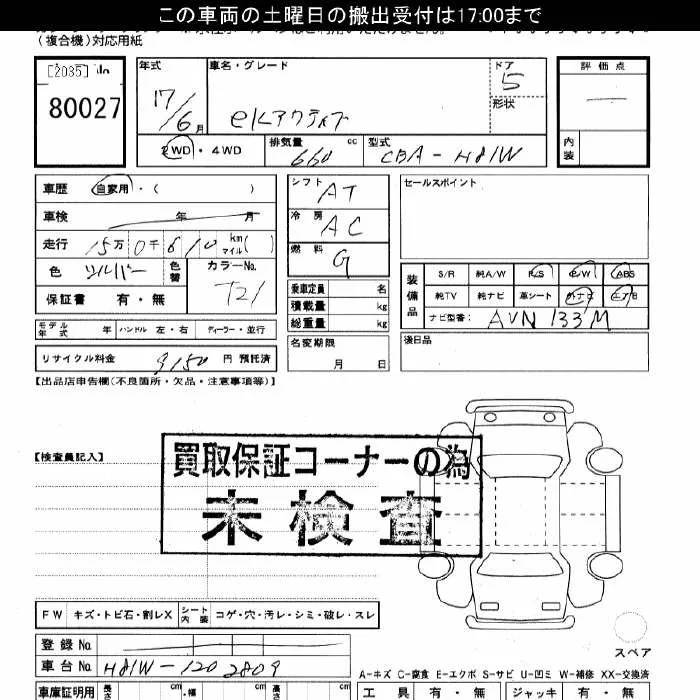 この車両の土曜日の搬出受付は17:00まで
(複合機)対応用紙
[2035] No
80027
年式
17/6月
車名・グレード
eKアクティブ
ドア
5
形状
評価点
内装
2WD・4WD
排気量 660 cc
型式 CBA-H81W
車歴 自家用・( )
車検 年 月
走行 15万0千610 km マイル( )
色 シルバー
色替
カラーNo. T21
保証書 有・無
シフト AT
冷房 AC
燃料 G
乗車定員 名
積載量 kg
総重量 kg
名変期限
月 日
セールスポイント
装備品
S/R 純A/W P/S P/W ABS
純TV 純ナビ 革シート 外ナビ エアB
ナビ型番: AVN 133M
後日品
モデル年式 年 ハンドル 左・右 ディーラー・並行
リサイクル料金 9150 円 預託済
【出品店申告欄(不良箇所・欠品・注意事項等)】
【検査員記入】
買取保証コーナーの為
未検査
FW キズ・トビ石・割レX シート内装 コゲ・穴・汚レ・シミ・破レ・スレ
登録No.
車台No. H81W-1202809
スペア
A-キズ C-腐食 E-エクボ S-サビ U-凹ミ W-補修 XX-交換済
車庫証明用 長さ cm ・幅 cm 高さ cm
工具 有・無 ジャッキ 有・無